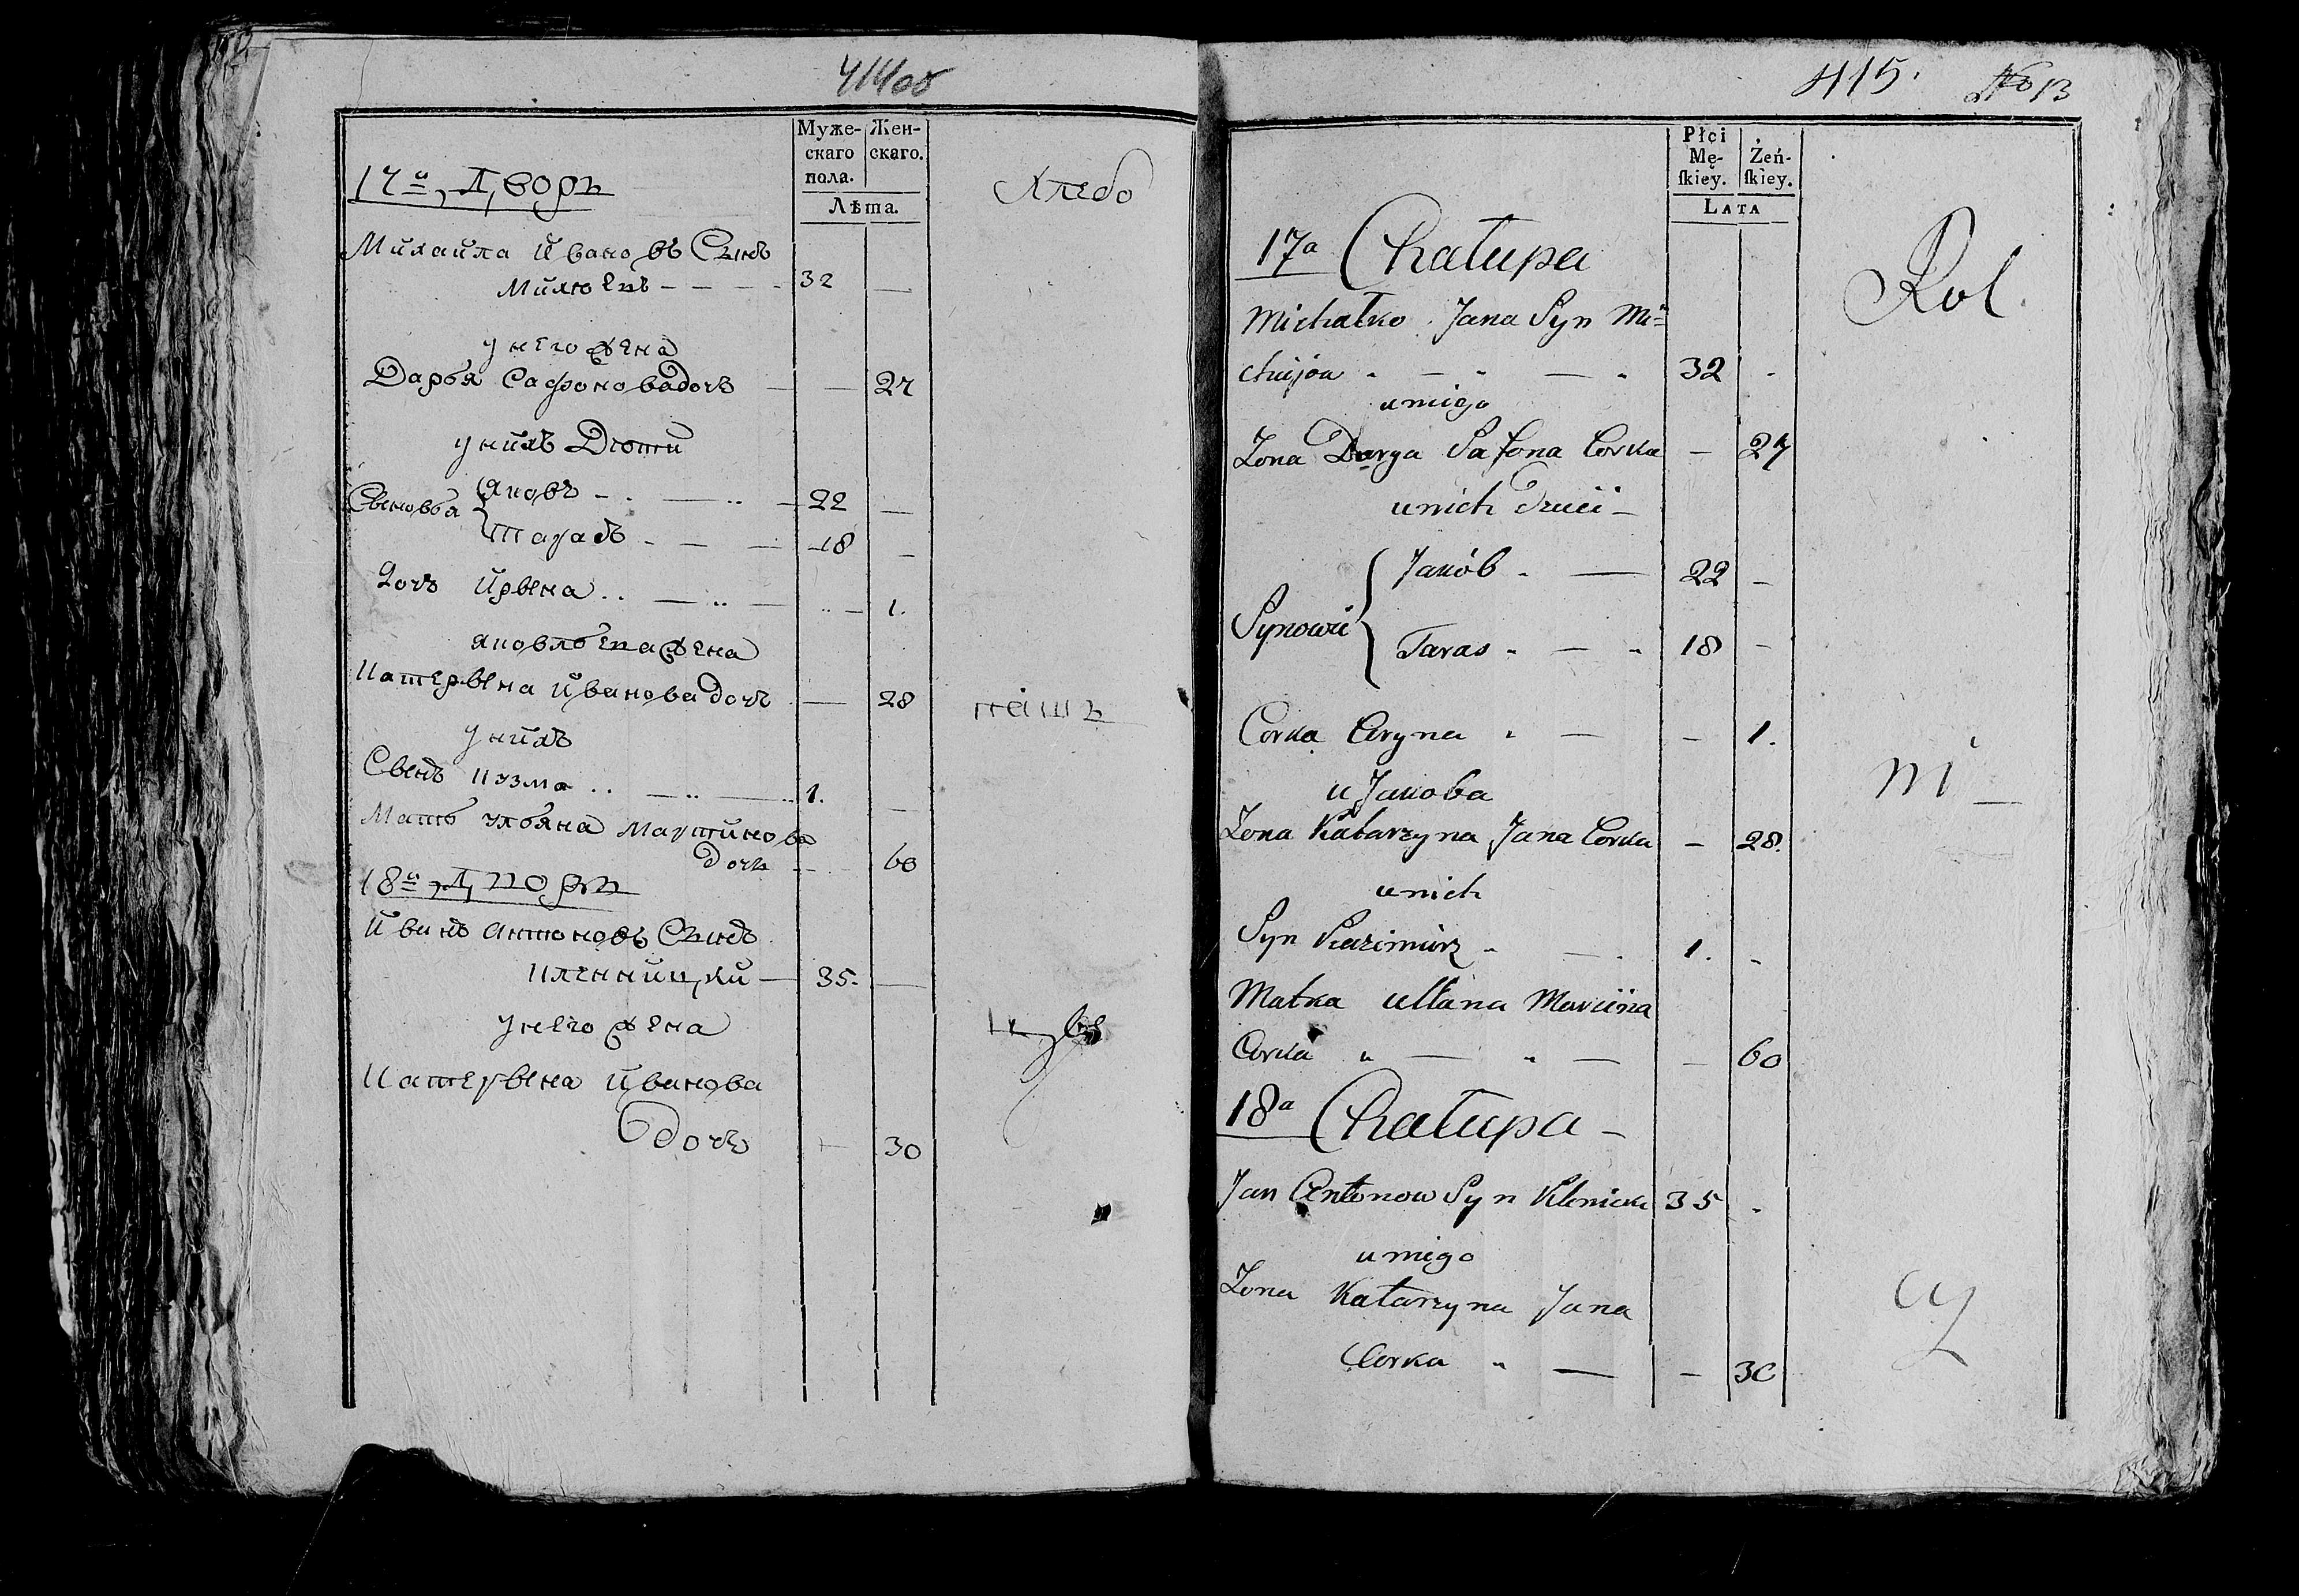 414об
Муже-
скаго
пола.
Жен-
скаго.
Лѣта.
17й Дворъ
Хлебо
Михаила Ивановъ Сынъ
Михѣевъ 32
у него жена
Дарья Сафонова дочъ 27
у нихъ Дѣти
Яковъ 22
Сыновья
Тарасъ 18
Дочъ Ирына 1.
Яковлѣва жена
Катерына Иванова дочъ 28
пашъ
у нихъ
Сынъ Кузма 1.
Мать Ульяна Мартинова
дочъ 60
18й Дворъ
Иванъ Антоновъ Сынъ
Кленницкй 35.
у него жена
Катерына Иванова
дочъ 30
415. No 13
Płci
Mę-
ſkiey.
Żeń-
ſkiey.
Lata
17a Chałupa
Rol.
Michałko Jana Syn Mi=
chijow 32
u niego
Zona Darya Safona Corka 27
u nich Dzieci
Jakób 22
Synowie
Taras 18
Corka Aryna 1.
ni
u Jakoba
Zona Katarzyna Jana Corka 28.
u nich
Syn Kazimirz 1.
Matka Ullana Marcina
Corka 60
18a Chałupa
Jan Antonow Syn Klenicki 35
u niego
Zona Katarzyna Jana
cy
Corka 30